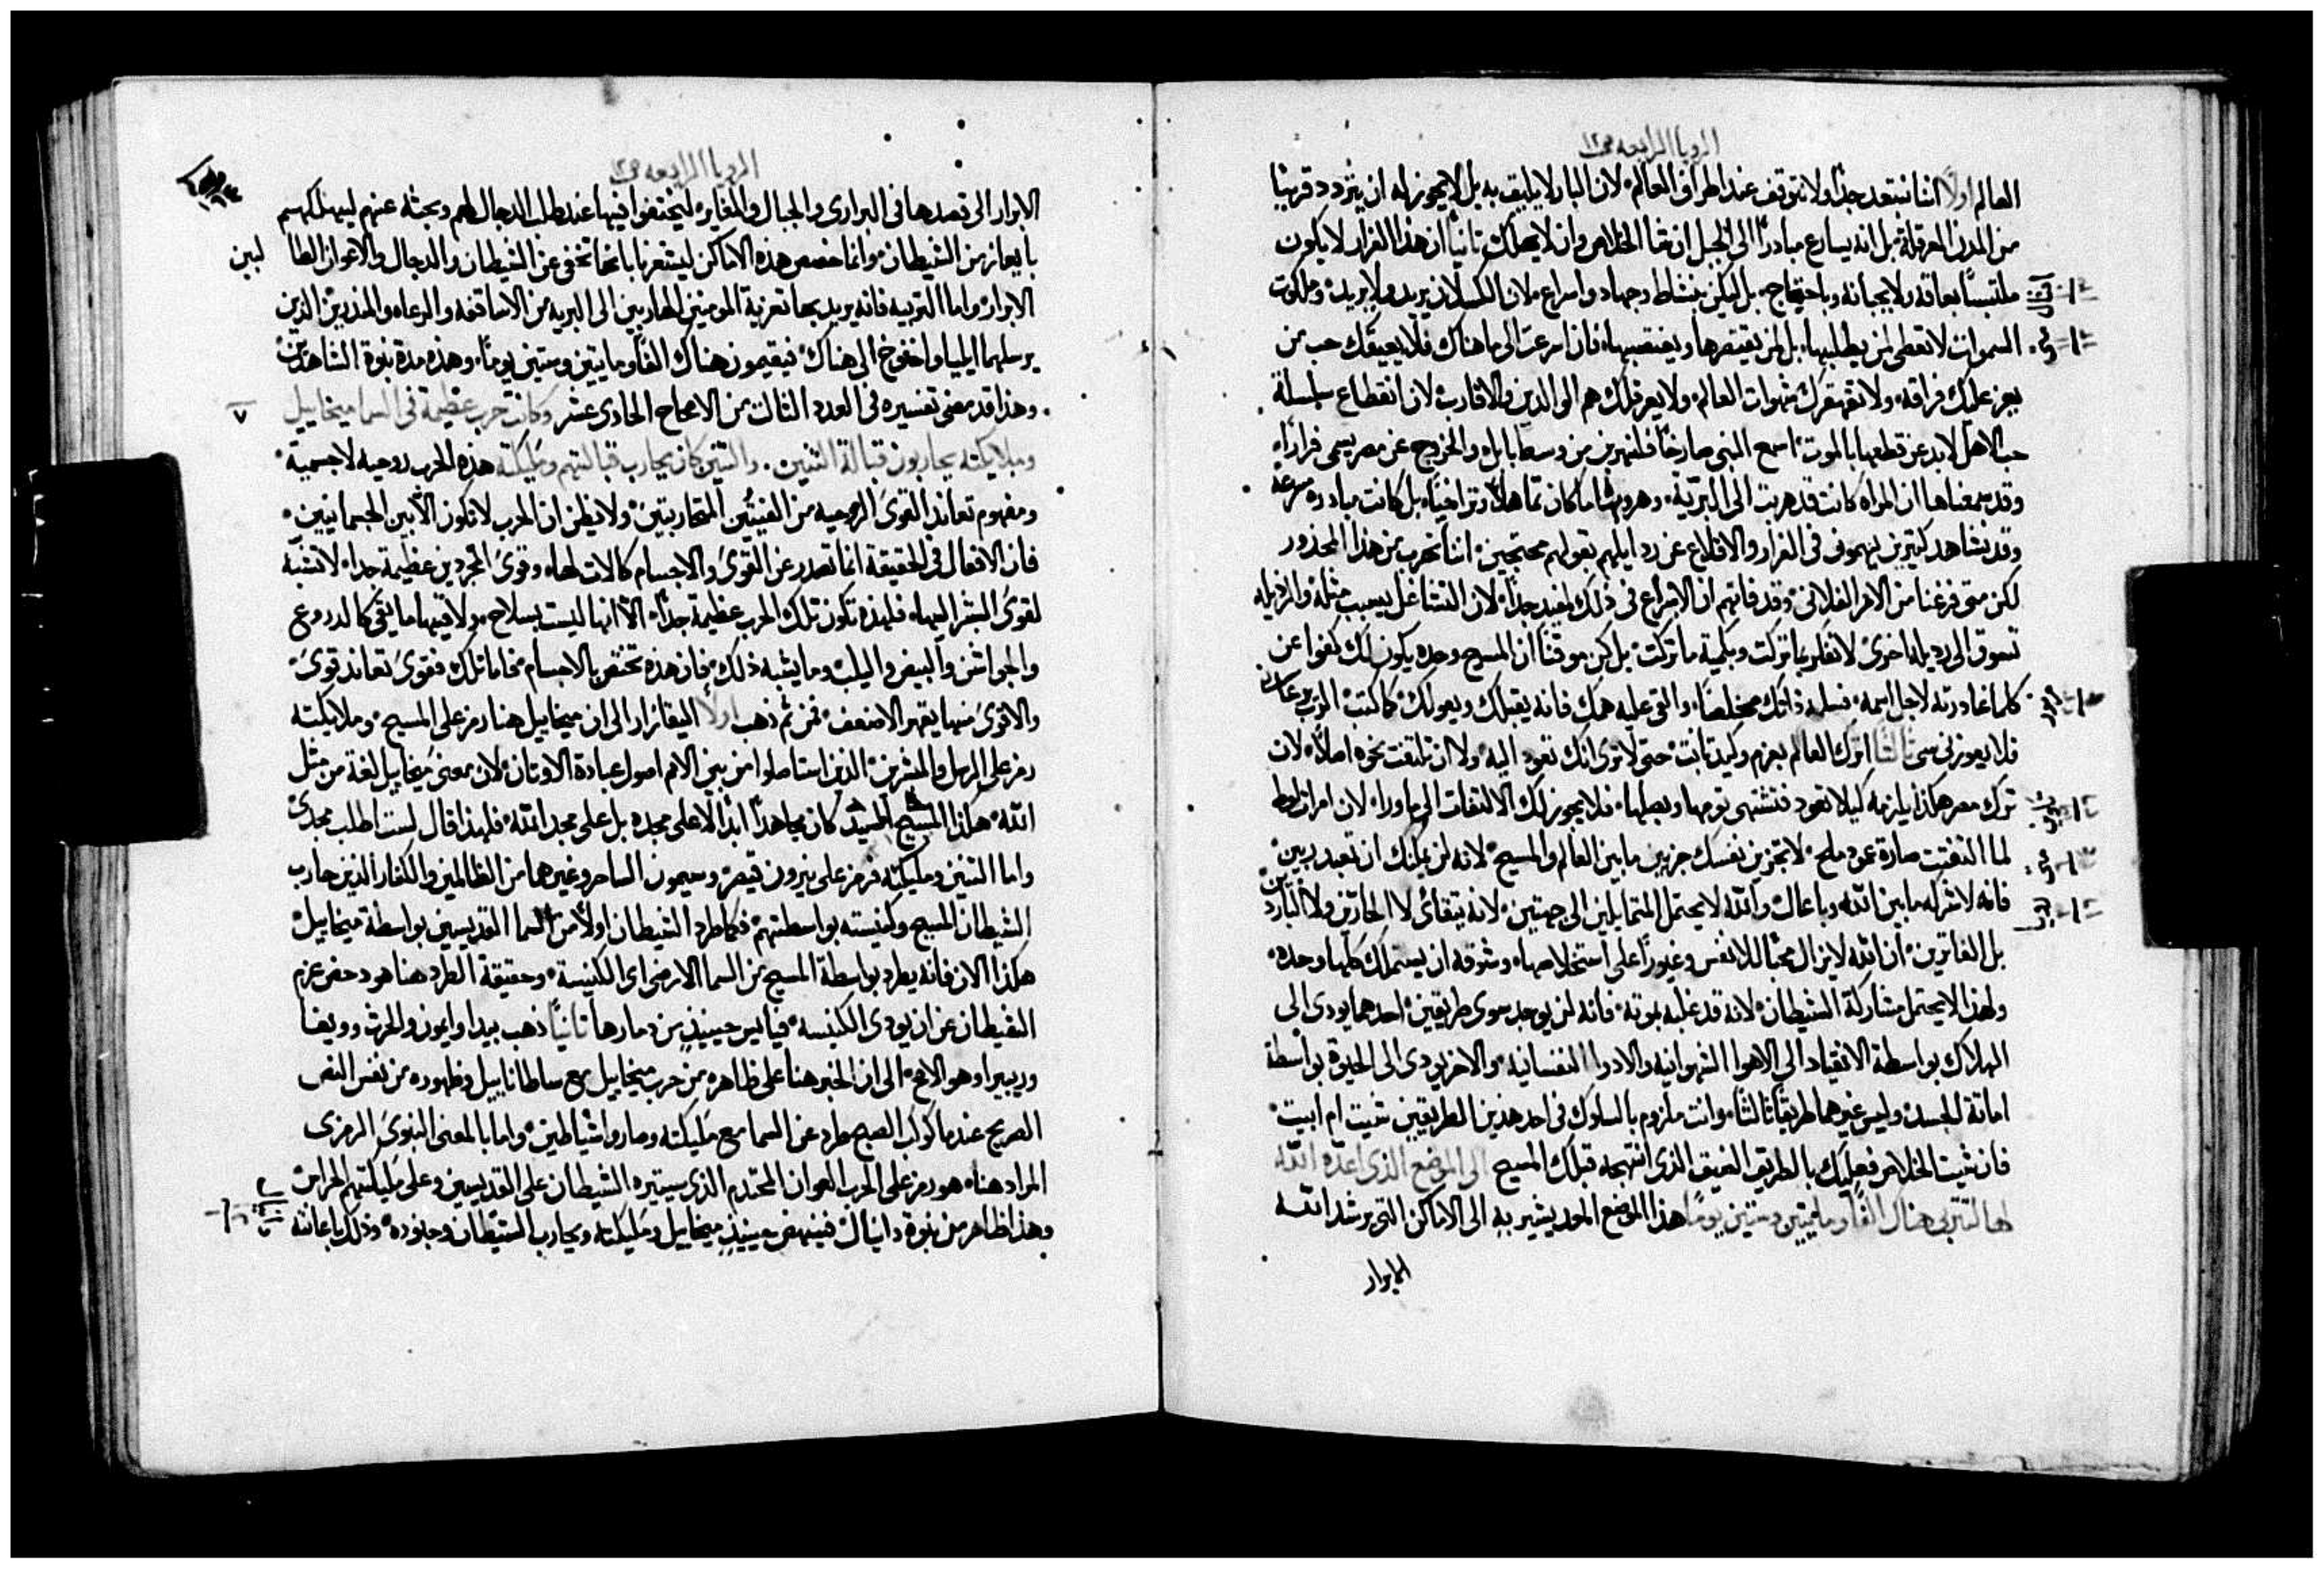 الرويا الرابعه ص١٢
العالم اولاً اننا نبتعد جدًا ولا نتوقف عند اطراف العالم لان البار لا يليق به بل لا يجوز له ان يتردد قريبًا
من المدن المعرقلة بل انه يسارع مبادرًا الى الجبل ان شا الخلاص وان لا يهلك ثانيًا ان هذا الفرار لا يكون
ملتبسًا بعاقه ولا بجبانه وباحتجاج بل ليكن بنشاط وجهاد واسراع لان الكسلان يريد ولا يريد وملكوت
السموات لا تعطى لمن يطلبها بل لمن يقتسرها ويغتصبها فان اسرعت الى ما هناك فلا يعيقك حب من
يعز عليك فراقه ولا تقهقرك شهوات العالم ولا يعرقلك هم الوالدين والاقارب لان انقطاع سلسلة
حب الاهل لا بد عن قطعها بالموت اسمع النبي صارخًا فلنهربن من وسط بابل والخروج عن مصر يسمى فرارًا
وقد سمعناها ان المراه كانت قد هربت الى البرية وهروبها ما كان تماهلاً وتراخيًا بل كانت مبادره مسرعة
وقد نشاهد كثيرين يتهون في الفرار والاقلاع عن رذايلهم بقولهم محتجين اننا نهرب من هذا المحذور
لكن متى فرغنا من الامر الفلاني وقد فاتهم ان الاسراع في ذلك يفيد جدًا لان التشاغل يسبب مثله والرذيله
تسوق الى رذيله اخرى لا تفكر بما تركت وبكمية ما تركت بل كن موقنًا ان المسيح وحده يكون لك كفوا عن
كلما غادرته لاجل اسمه فسلمه ذاتك مخلصًا والق عليه همك فانه يقبلك ويعولك كما كتب الرب يرعاني
فلا يعوزني شي ثالثًا اترك العالم بعزم وكيد ثابت حتى لا ترى انك تعود اليه ولا ان تلتفت نحوه اصلاً لان
ترك مصر هكذا يلزمه كيلا تعود فتشتهي ثومها وبصلها فلا يجوز لك الالتفات الى ما وراء لان امراة لوط
لما التفتت صارة عمود ملح لا تجزين نفسك جزين ما بين العالم والمسيح لانه لن يمكنك ان تعبد ربين
فانه لا شركه ما بين الله وباعال والله لا يحتمل المتمايلين الى جهتين لانه يتقيا لا الحارين ولا الباردين
بل الفاترين ان الله لا يزال محبًا للانفس وغيورًا على استخلاصها وشوقه ان يستملك كلها وحده
ولهذا لا يحتمل مشاركة الشيطان لانه قد غلبه بموته فانه لن يوجد سوى طريقين احدهما يودي الى
الهلاك بواسطة الانقياد الى الاهوا الشهوانيه والادوا النفسانيه والاخر يودي الى الحيوة بواسطة
اماتة الجسد وليس غيرهما طريقًا ثالثًا وانت ملزوم بالسلوك في احد هذين الطريقين شيت ام ابيت
فان شيت الخلاص فعليك بالطريق الضيق الذي انتهجه قبلك المسيح الى الموضع الذي اعده الله
لها لتتربى هناك الفًا ومايتين وستين يومًا هذا الموضع المعد يشير به الى الاماكن التي يرشد الله
الابرار
الرويا الرابعه ص١٢
الابرار الى قصدها في البراري والجبال والمغاير ليختفوا فيها عند طلب الدجال لهم وبحثه عنهم ليهلكهم
بايعاز من الشيطان وانما خصص هذه الاماكن ليشعرنا بانها تخفى عن الشيطان والدجال والاعوان الطالبين
الابرار واما التربيه فانه يريد بها تعزية المومنين الهاربين الى البريه من الاساقفه والرعاه والمنذرين الذين
يرسلهما ايليا واخنوخ الى هناك فيقيمون هناك الفًا ومايتين وستين يومًا وهذه مدة نبوة الشاهدين
وهذا قد مضى تفسيره في العدد الثالث من الاصحاح الحادي عشر وكانت حرب عظيمة في السما ميخاييل
٧
وملايكته يحاربون قبالة التنين. والتنين كان يحارب قبالتهم ومليكته هذه الحرب روحيه لا جسمية
ومفهوم تعاند القوى الروحيه من الفيتين المتحاربتين ولا يظن ان الحرب لا تكون الا بين الجسمانيين
فان الافعال في الحقيقة انما تصدر عن القوى والاجسام كالات لها وقوى المجردين عظيمة جدا لا تشبه
لقوى البشر اليها فلهذه تكون تلك الحرب عظيمة جدًا الا انها ليست بسلاح ولا فيها ما يقي كالدروع
والجواشن والبيض واليلب وما يشبه ذلك فان هذه تختص بالاجسام فاما تلك فقوى تعاند قوى
والاقوى منها يقهر الاضعف فمن ثم ذهب اولاً اليقازار الى ان ميخاييل هنا رمز على المسيح وملايكته
رمز على الرسل والمبشرين الذين استاصلوا من بين الامم اصول عبادة الاوثان لان معنى ميخاييل لغة من مثل
الله هكذا المسيح السيد كان مجاهدًا ابدًا لا على مجده بل على مجد الله فلهذا قال لست اطلب مجدي
واما التنين ومليكته فرمز على نيرون قيصر وسيمون الساحر وغيرهما من الظالمين والكفار الذين حارب
الشيطان المسيح وكنيسته بواسطتهم فكما طرد الشيطان اولاً من السما القديسين بواسطة ميخاييل
هكذا الان فانه يطرد بواسطة المسيح من السما الارضى اى الكنيسة وحقيقة الطرد هنا هو دحض عزم
الشيطان عن ان يوذي الكنيسه فيايس حينيذٍ من دمارها ثانيًا ذهب بيدا وايمون والحرث وويغا
وريبيرا وهو الاصح الى ان الخبر هنا على ظاهره من حرب ميخاييل مع ساطاناييل وظهوره من نفس النص
الصريح عندما كوكب الصبح طرد عن السما مع مليكته وصاروا شياطين واما بالمعنى النبوى الرمزى
المراد هنا هو رمز على الحرب العوان المحتدم الذي سيثيره الشيطان على القديسين وعلى مليكتهم الحراس
وهذا ظاهر من نبوة دانيال فينهض حينيذٍ ميخاييل ومليكته ويحارب الشيطان وجنوده وذلك باعانته